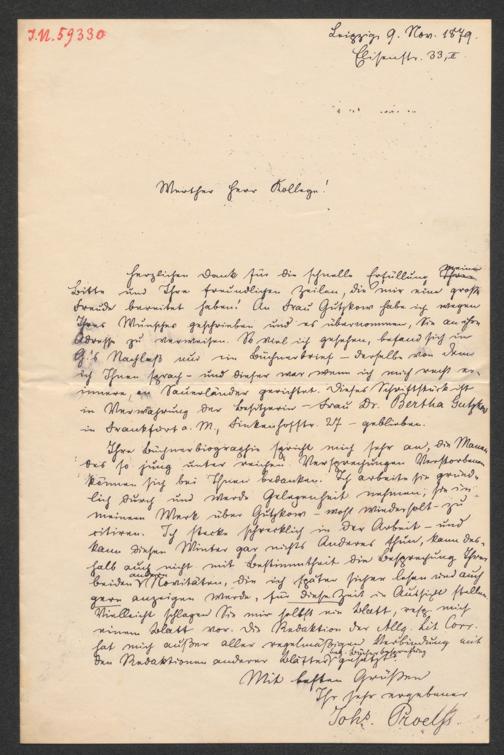 J.N. 59330
Leipzig, 9. Nov. 1879.
Eisenstr. 33, II
Werther Herr Kollege!
Herzlichen Dank für die schnelle Erfüllung meiner
Bitte und Ihre freundlichen Zeilen, die mir eine große
Freude bereitet haben! An Frau Gutzkow habe ich wegen
Ihres Wunsches geschrieben und es übernommen, Sie an ihre
Adresse zu verweisen. So viel ich gesehen, befand sich in
G's Nachlaß nur ein Büchnerbrief – derselbe von dem
ich Ihnen sprach – und dieser war wenn ich mich recht er-
innere, an Sauerländer gerichtet. Dieses Schriftstück ist
in Verwahrung der Besitzerin – Frau Dr. Bertha Gutzkow
in Frankfurt a. M., Finkenhofstr. 27 – geblieben.
Ihre Büchnerbiographie spricht mich sehr an, die Manen
des so jung unter reichen Versprechungen Verstorbenen
können sich bei Ihnen bedanken. Ich arbeite sie gründ-
lich durch und werde Gelegenheit nehmen, sie in
meinem Werk über Gutzkow – wohl wiederholt – zu
citiren. Ich stecke schrecklich in der Arbeit – und
kann diesen Winter gar nichts Anderes thun, kann des-
halb auch nicht mit Bestimmtheit die Besprechung Ihrer
beiden andern Novitäten, die ich später sicher lesen und auch
gern anzeigen werde, für diese Zeit in Aussicht stellen.
Vielleicht schlagen Sie mir selbst ein Blatt, resp. mich
einem Blatt vor. Die Redaktion der Allg. Lit. Corr.
hat mich außer aller regelmäßigen Verbindung mit
den Redaktionen anderer Blätter bez. Bücherbesprechung gesetzt.
Mit besten Grüßen
Ihr sehr ergebener
Johs. Proelß.